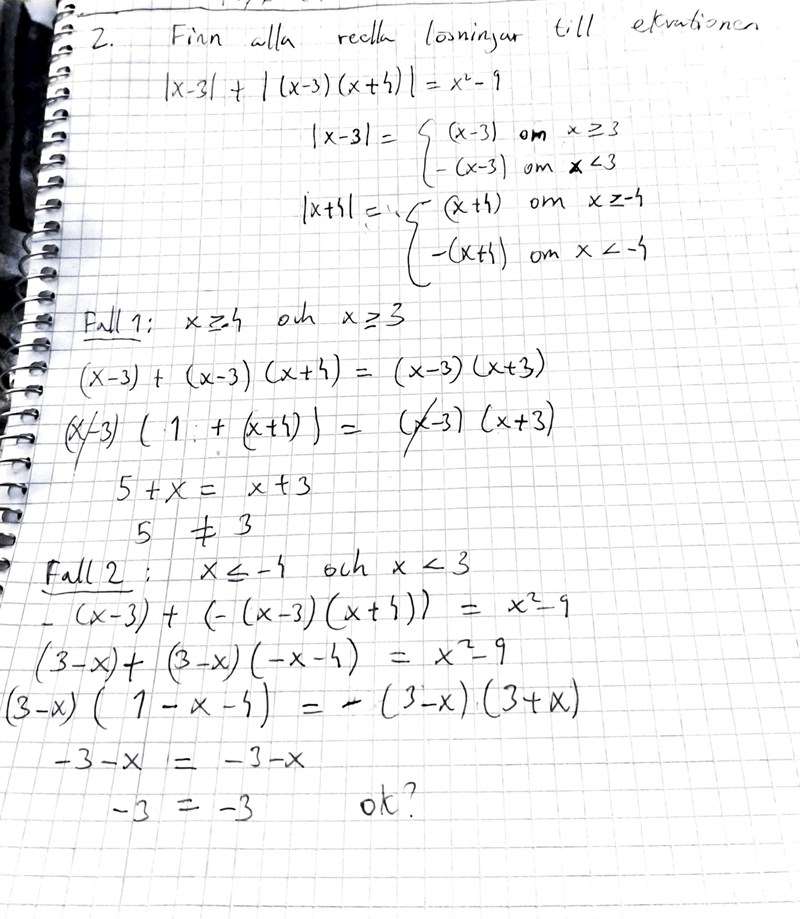 2. Finn alla reella lösningar till ekvationen
|x-3| + |(x-3)(x+4)| = x²-9
|x-3| = { (x-3) om x ≥ 3
-(x-3) om x < 3
|x+4| = { (x+4) om x ≥ -4
-(x+4) om x < -4
Fall 1: x ≥ -4 och x ≥ 3
(x-3) + (x-3)(x+4) = (x-3)(x+3)
(x-3) ( 1 + (x+4) ) = (x-3) (x+3)
5 + x = x + 3
5 ≠ 3
Fall 2: x ≤ -4 och x < 3
- (x-3) + (-(x-3)(x+4)) = x²-9
(3-x) + (3-x)(-x-4) = x²-9
(3-x) ( 1 - x - 4 ) = - (3-x).(3+x)
-3-x = -3-x
-3 = -3 ok?